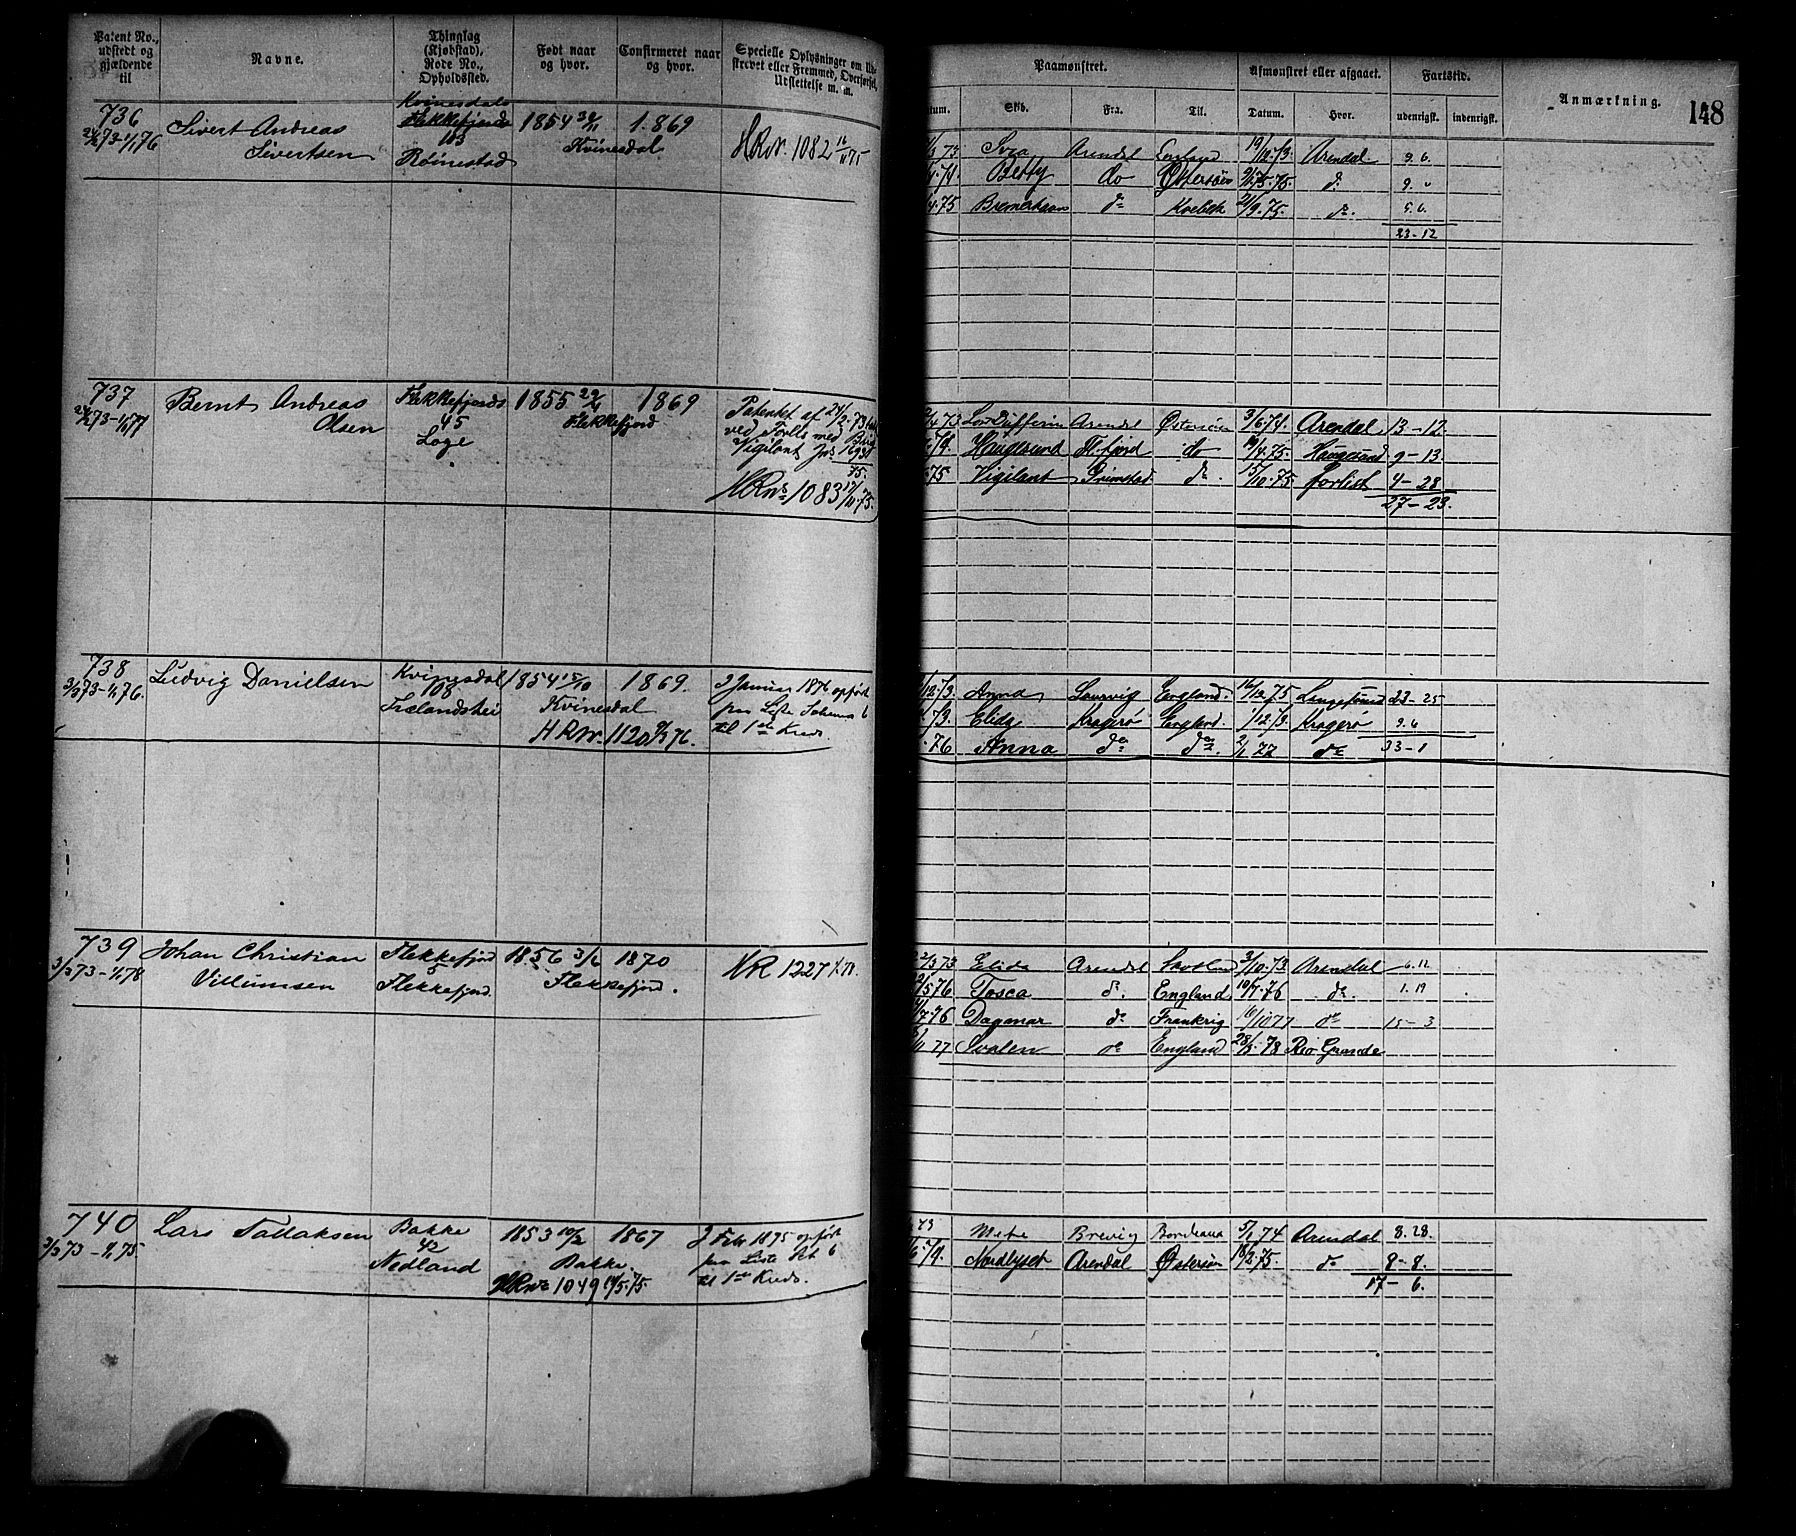 Patent No.,
udstedt og
gjældende
til
Navne.
Thinglag
(Kjøbstad),
Rode No.,
Opholdssted.
Født naar
og hvor.
Confirmeret naar
og hvor.
Specielle Oplysninger om Ud-
strevet eller Fremmed, Overførsel,
Udslettelse m. m.
736
Sivert Andreas
Sivertsen
Kvinesdal
Flekkefjords
103
Røinestad
1854
1869
Kvinesdal
HRN. 1082
737
Bernt Andreas
Olsen
Flekkefjords
45
Loge
1855
1869
Flekkefjord
Patentet af 24/2 73
ved Forlis med
Vigilant
HRN. 1083
738
3/3 73-1/1 76.
Ludvig Danielsen
Kvinesdal
108
Frælandshei
1854 15/10
1869.
Kvinesdal
HRN. 1120
I Januar 1876 opført
paa Liste Schema 6
til 1ste Kreds.
739
3/3 73-1/1 78
Johan Christian
Villumsen
Flekkefjord
5
Flekkefjord.
1856 3/6
1870
Flekkefjord.
NR 1227
740
3/3 73-1/1 75
Lars Tallaksen
Bakke
42
Nedland
1853 10/2
1867
Bakke.
HRN. 1049
I Febr 1875 opført
paa Liste Sch 6
til 1ste Kreds.
148
Paamønstret.
Afmønstret eller afgaaet.
Fartstid.
Anmærkning.
Datum.
Skib.
Fra.
Til.
Datum.
Hvor.
udenrigsk.
indenrigsk.
73 Svea Arendal England 19/12 73. Arendal 9.6.
74. Betty do Østersøen do 9.
75 Bremerhaven do Kvebek 21/9.75. do. 5.6.
23-12
73 Lord Dufferin Arendal Østersøen 3/6 74. Arendal 13-12.
74. Haugesund Fl.fjord do 19/4.75. Haugesund 9-13.
75 Vigilant Grimstad do. 15/10.75 Forlist 4-28
27-23.
73. Anna Laurvig England. 16/12.75 Langesund 23-25
73. Elida Kragerø England. /12 73. Kragerø 9.6
76 Anna do do. 2/1 77 do 33-1
73 Elida Arendal Skotland 3/10.73. Arendal 6.12
76 Tosca do. England 10/7.76 do. 1.19
76 Dagmar do Frankrig 16/10 77 do 15-3
77 Svalen do England 28/3.78 Rio Grande
73 Meta Brevig Bordeaux 5/1 74 Arendal 8.28.
74. Nordlyset Arendal Østersøen 18/2.75. do 8-8.
17-6.